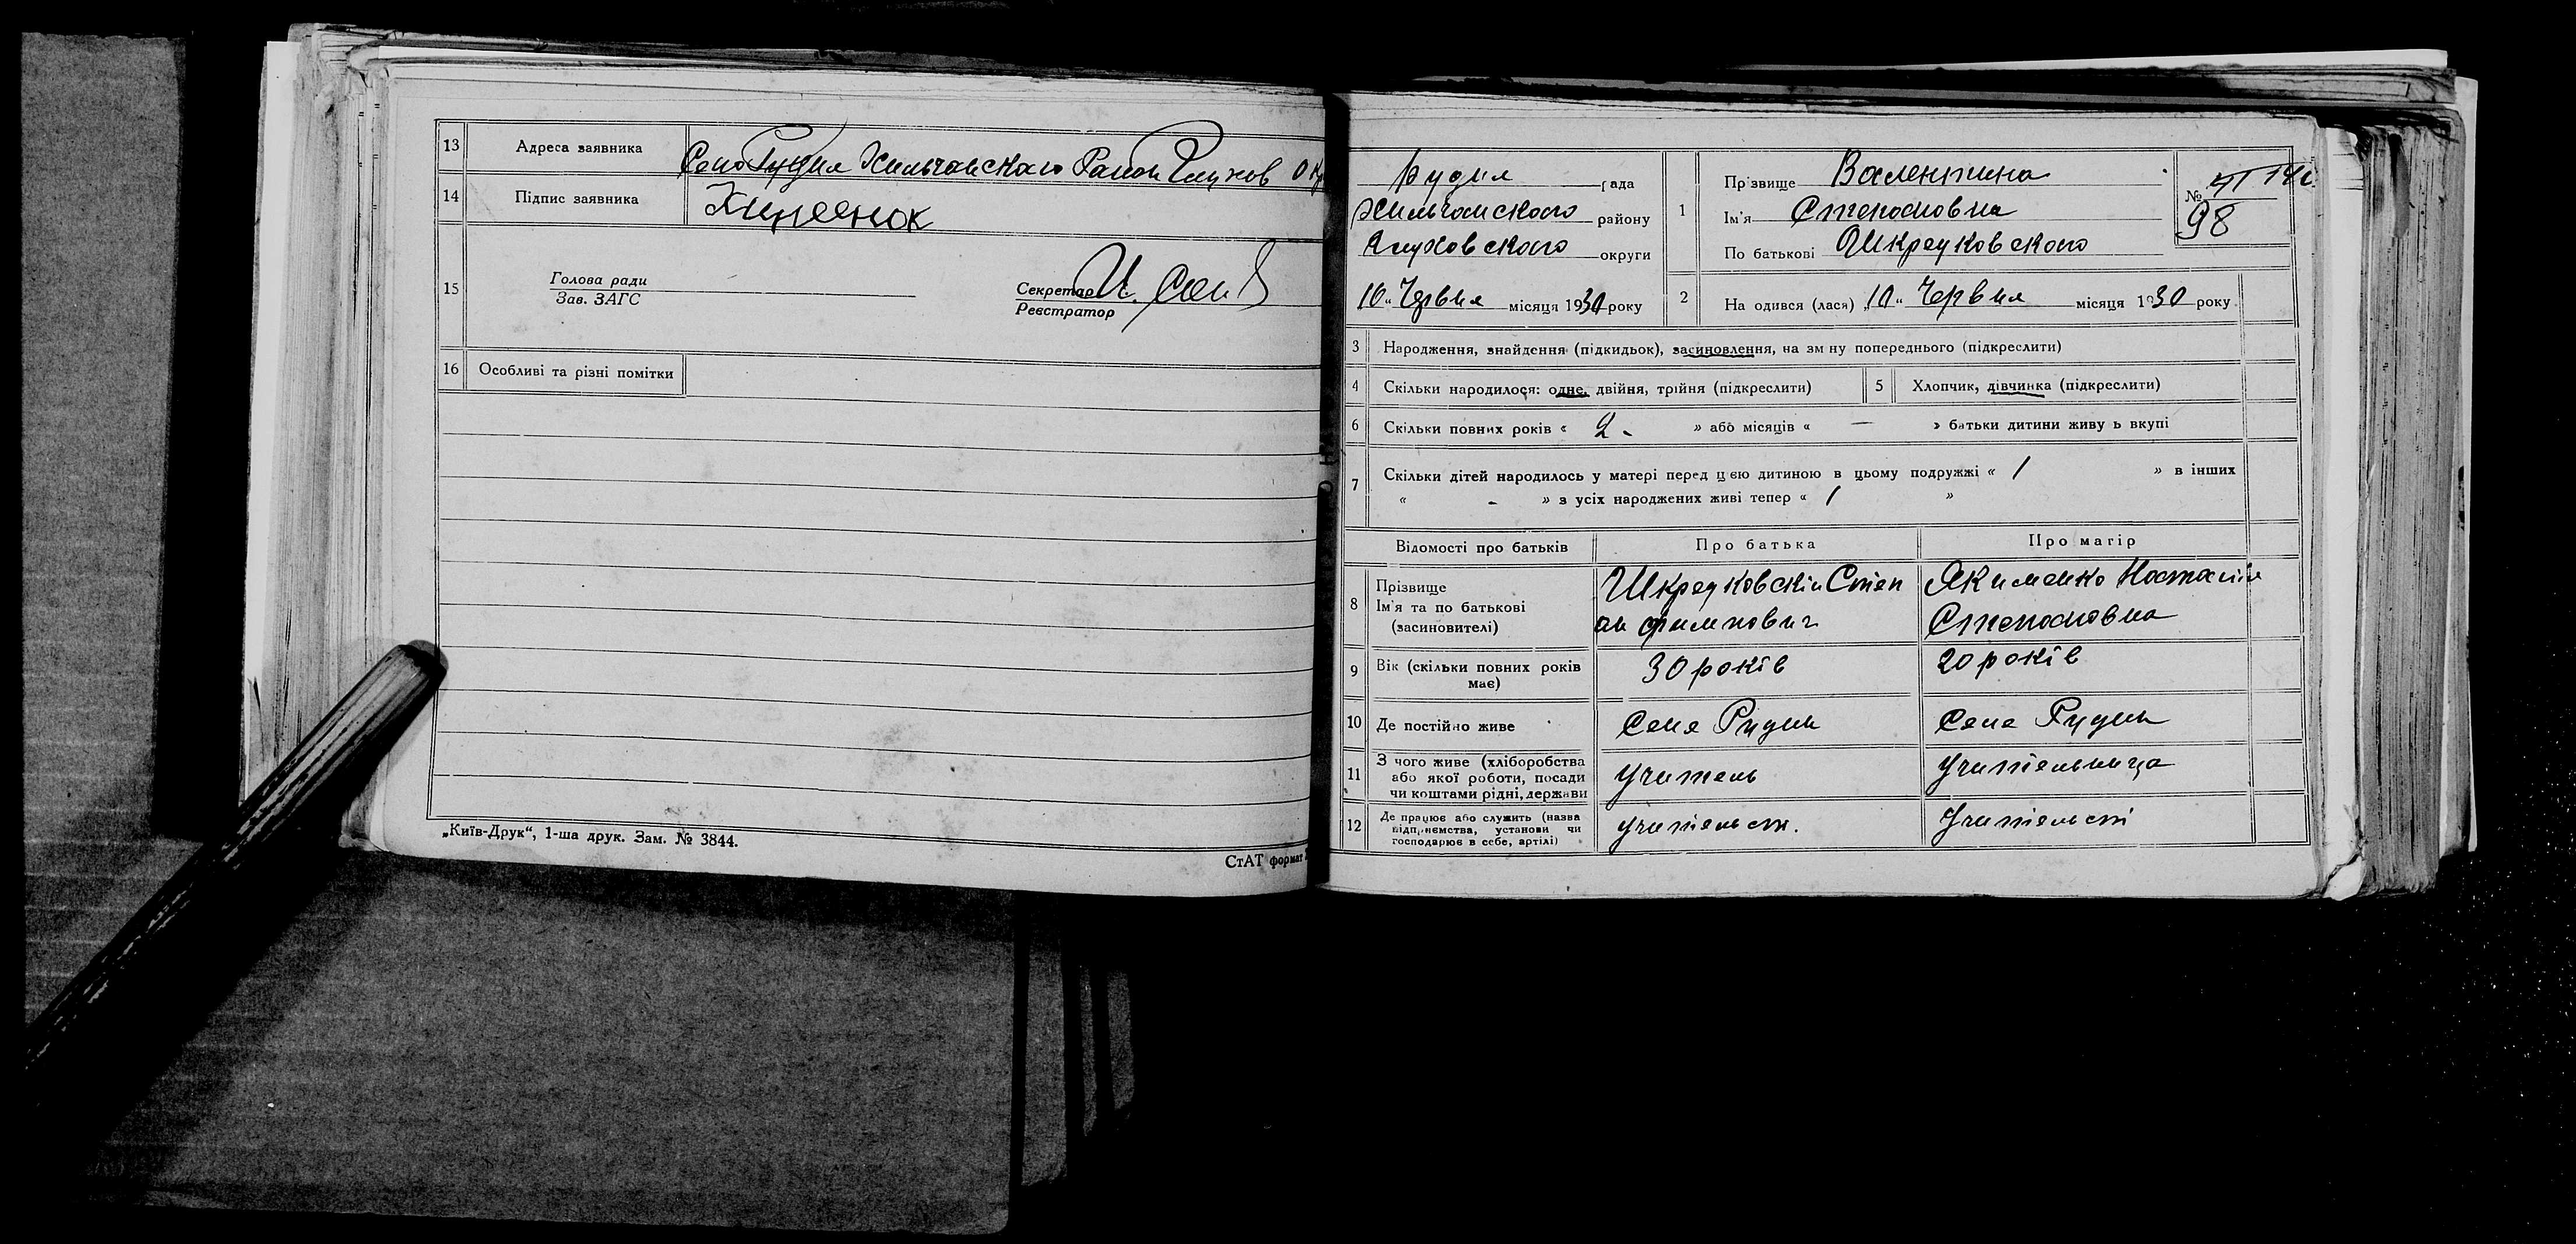 13 Адреса заявника Село Рудня Хильчанского Район Глухов Окр
14 Підпис заявника
15 Голова ради
Зав. ЗАГС
Секретар
Реєстратор
16 Особливі та різні помітки
„Київ-Друк“, 1-ша друк. Зам. № 3844.
СтАТ формат
Рудня рада
Хильчанского району
Глуховского округи
10 „ Червня місяця 1930 року
1 Прізвище Валентина
Ім'я Степановна
По батькові Шкреуковского
№
98
2 На одився (лася) „10 “ Червня місяця 1930 року
3 Народження, знайдення (підкидьок), засиновлення, на зм ну попереднього (підкреслити)
4 Скільки народилося: одне, двійня, трійня (підкреслити)
5 Хлопчик, дівчинка (підкреслити)
6 Скільки повних років « 2 - » або місяців « — » батьки дитини живу ь вкупі
7 Скільки дітей народилось у матері перед цією дитиною в цьому подружжі « 1 » в інших
« - » з усіх народжених живі тепер « 1 »
Відомості про батьків Про батька Про матір
8 Прізвище
Ім'я та по батькові
(засиновителі)
Шкреуковскій Степ
ан филипович
Якименко Настасия
Степановна
9 Вік (скільки повних років
має)
30 років 20 років
10 Де постійно живе Селе Рудня Селе Рудня
11 З чого живе (хліборобства
або якої роботи, посади
чи коштами рідні, держави
учитель учительница
12 Де працює або служить (назва
підприємства, установи чи
господарює в себе, артілі)
учительст. Учительст